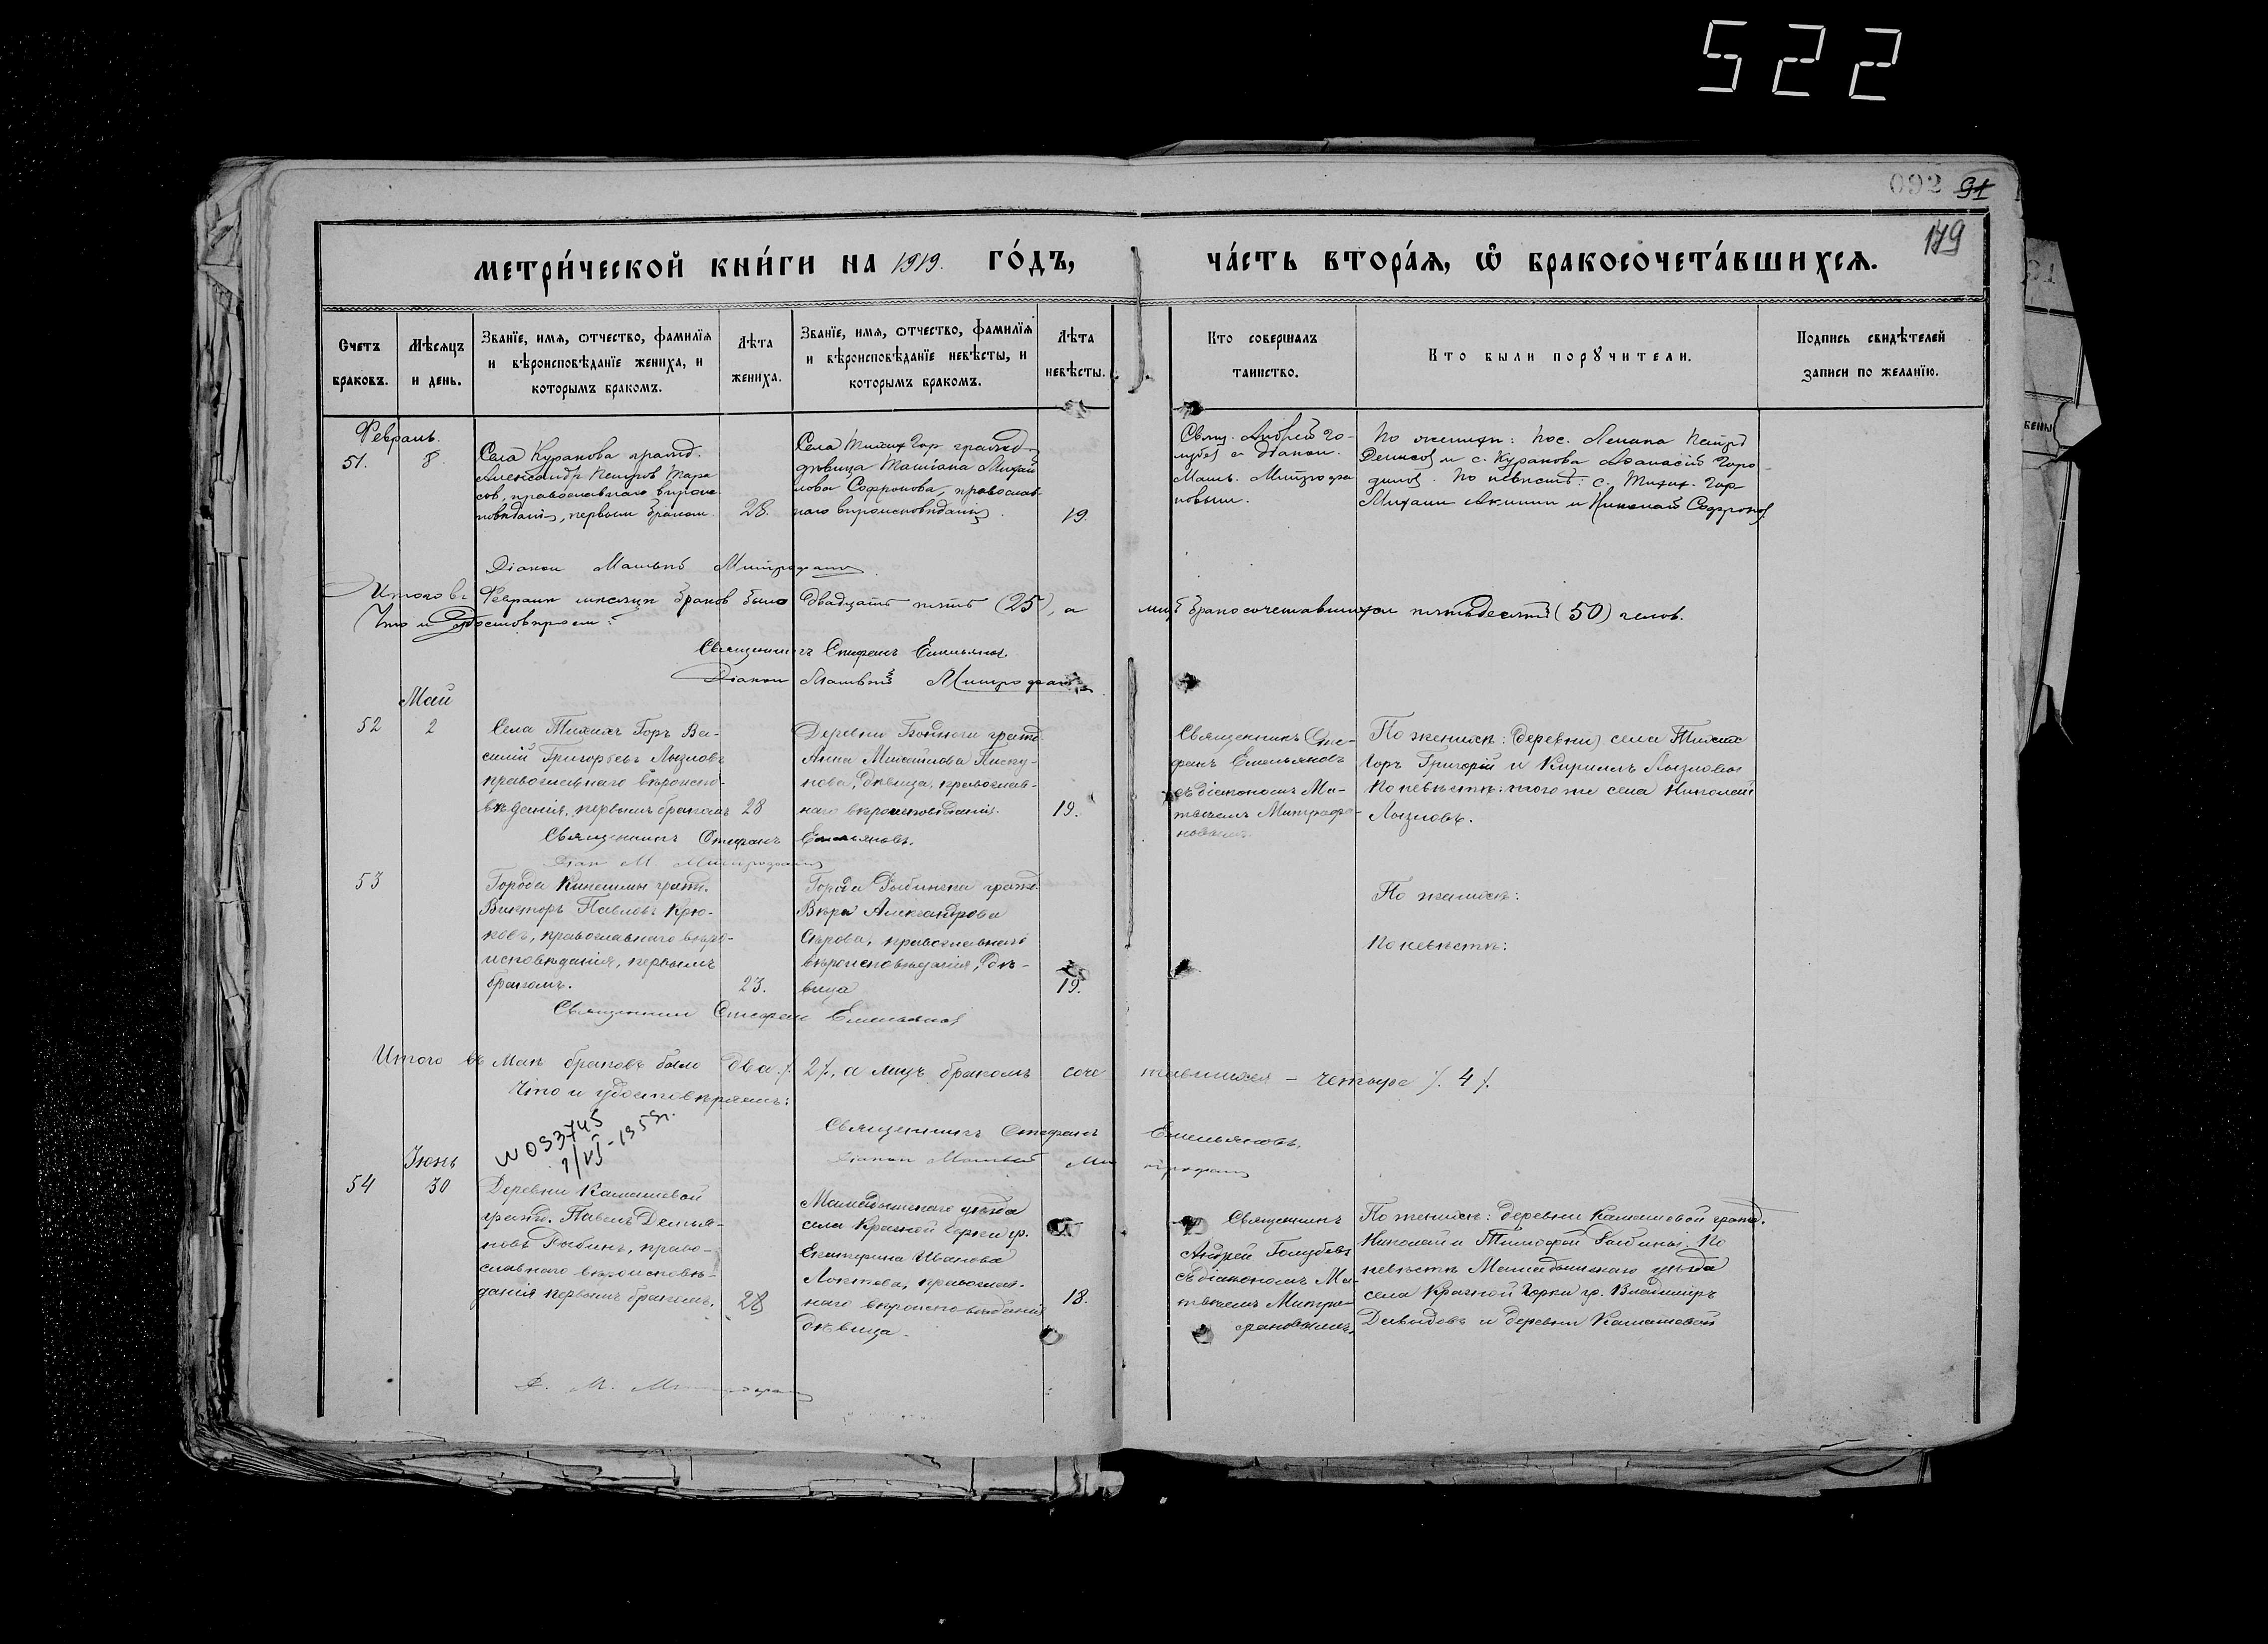 522
092 91
179
МЕТРИ́ЧЕСКОЙ КНИ́ГИ НА 1919. ГО́ДЪ, ЧА́СТЬ ВТОРА́Я, Ѡ БРАКОСОЧЕТА́ВШИХСЯ.
Счетъ браковъ.
Мѣсяцъ и день.
Званїе, имя, ѡтчество, фамилїя
и вѣроисповѣданїе жениха, и
которымъ бракомъ.
Лѣта жениха.
Званїе, имя, ѡтчество, фамилїя
и вѣроисповѣданїе невѣсты, и
которымъ бракомъ.
Лѣта невѣсты.
Кто совершалъ
таинство.
Кто были порꙋчители.
Подпись свидѣтелей
записи по желанїю.
Февраль.
51. 8
Села Куракова гражд.
Александр Петров Тара
сов, православнаго вѣроис
повѣданія, первым браком. 28.
Села Тихих Гор гражд
дѣвица Татіана Михай
лова Софронова, православ
наго вѣроисповѣданія. 19.
Свящ. Андрей Го-
лубев с діакон.
Матв. Митрофа
новым.
По женихѣ: пос. Петр
Денисов и с. Куракова Афанасій Горо
. По невѣстѣ: с. Тихих Гор
Михаил и Николай Софронов
Діакон Матвей Митрофанов
Итого въ Февралѣ мѣсяцѣ браков было двадцать пять (25), а лиц бракосочетавшихся пятьдесят (50) челов.
Что и удостовѣряем:
Священникъ Стефанъ Емельянов.
Діакон Матвей Митрофанов
Май
52 2
Села Тихихъ Горъ Ва-
силій Григорьевъ Лызловъ
православнаго вѣроиспо-
вѣданія, первымъ бракомъ 28
Деревни гражд.
Анна Михайлова Писку-
нова, дѣвица, православ-
наго вѣроисповѣданія. 19.
Священникъ Сте-
фанъ Емельяновъ
съ діакономъ Ма-
твѣемъ Митрофа-
новымъ.
По женихѣ: (деревни) села Тихихъ
Горъ Григорій и Кириллъ Лызловы
По невѣстѣ: того же села Николай
Лызловъ.
Священникъ Стефанъ Емельяновъ.
Діак М. Митрофанов
53
Города Кинешмы гражд.
Викторъ Павловъ Крю-
ковъ, православнаго вѣро-
исповѣданія, первымъ
бракомъ. 23.
Города Рыбинска гражд.
Вѣра Александрова
Сѣрова, православнаго
вѣроисповѣданія, дѣ-
вица 19.
По женихѣ:
По невѣстѣ:
Священник Стефан Емельянов
Итого въ Маѣ браковъ было два /. 2 /., а лицъ бракомъ сочетавшихся – четыре /. 4 /.
Что и удостовѣряемъ:
Священникъ Стефанъ Емельяновъ.
Діакон Матвей Митрофанов
053745
Іюнь
54 30
Деревни Камашевой
гражд. Павелъ Демья-
новъ Рыбинъ, право-
славнаго вѣроисповѣ-
данія первымъ бракомъ. 28
Мамадышскаго уѣзда
села Красной Горки гр.
Екатерина Иванова
Локтева, православ-
наго вѣроисповѣданія
дѣвица. 18.
Священникъ
Андрей Голубевъ
съ діакономъ Ма-
твѣемъ Митро-
фановымъ.
По женихѣ: деревни Камашевой гражд.
Николай и Тимофей Рыбины. По
невѣстѣ Мамадышскаго уѣзда
села Красной Горки гр. Владиміръ
Давыдовъ и деревни Камашевой
Д. М. Митрофанов